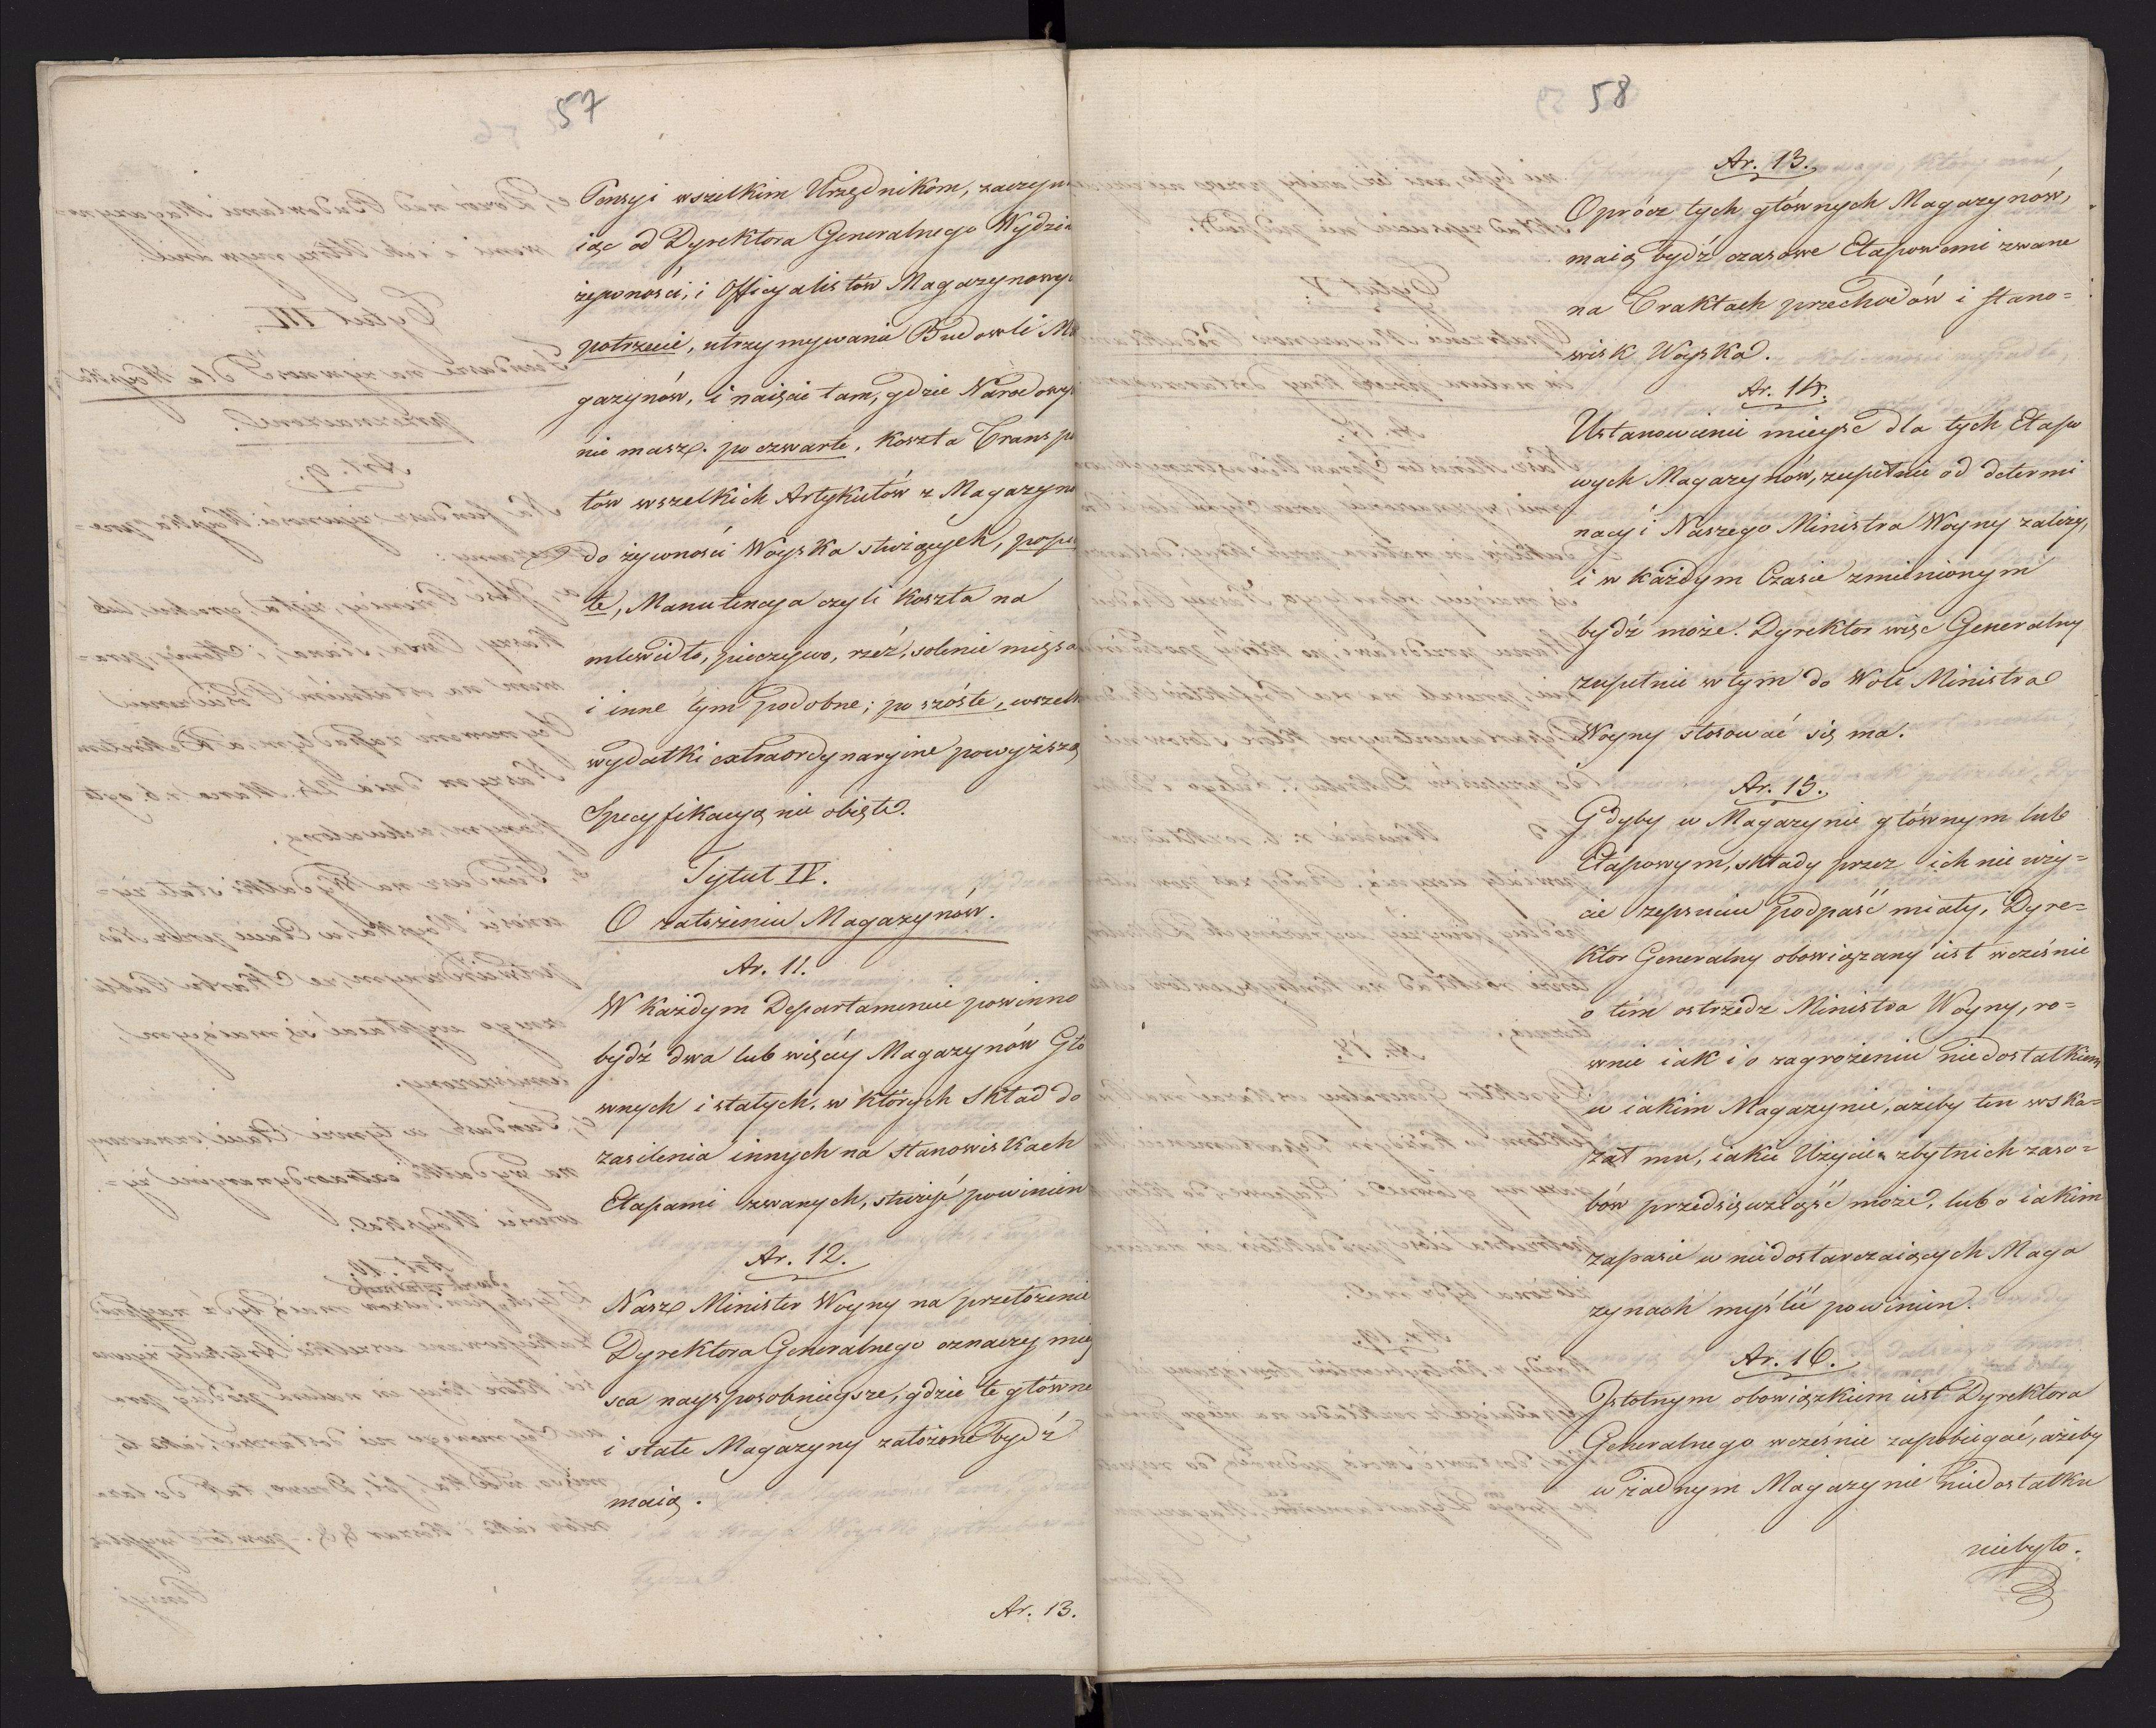 57
Pensyi wszelkim Urzędnikom, zaczyna
iąc od Dyrektora Generalnego Wydzia
żywności, i Officyalistów Magazynowy
potrzecie, utrzymywania Budowli Ma
gazynów, i naięcie tam, gdzie Narodowy
nie masz. po czwarte, koszta Transpo
tów wszelkich Artykułów z Magazyn
do żywności Woyska służących, popią
te, Manutencya czyli koszta na
mlewidło, pieczywo, rzeź, solenie mięsa
i inne tym podobne; po szóste, wszelk
wydatki extraordynaryine powyższą
Specyfikacyą nie obięte.
Tytuł IV.
O założeniu Magazynów.
Ar. 11.
W każdym Departamencie powinno
bydź dwa lub więcéy Magazynów Głó
wnych i stałych, w których Skład do
zasilenia innych na stanowiskach
Etapami zwanych, służyć powinien
Ar. 12.
Nasz Minister Woyny na przełożenie
Dyrektora Generalnego oznaczy miey
sca naysposobnieysze, gdzie te główne
i stałe Magazyny założone bydź
maią.
Ar. 13.
58
Ar. 13.
Oprócz tych głównych Magazynów,
maią bydź czasowe Etapowemi zwane
na Traktach przechodów i stano=
wisk Woyska.
Ar. 14.
Ustanowienie mieysc dla tych Etapo
wych Magazynów, zupełnie od determi
nacyi Naszego Ministra Woyny zależy,
i w każdym Czasie zmienionym
bydź może. Dyrektor więc Generalny
zupełnie w tym do Woli Ministra
Woyny stosować się ma.
Ar. 15.
Gdyby w Magazynie głównym lub
Etapowym, składy przez ich nie uży=
cie zepsuciu podpaść miały, Dyre=
ktor Generalny obowiązany iest wcześnie
o tém ostrzedz Ministra Woyny, ro=
wnie iak i o zagrożeniu niedostatkiem
w iakim Magazynie, ażeby ten wska=
zał mu, iakie Użycie zbytnich zaso=
bów przedsięwziąść może, lub o iakim
zapasie w niedostarczaiących Maga
zynach myślić powinien.
Ar. 16.
Istotnym obowiązkiem iest Dyrektora
Generalnego wcześnie zapobiegać, ażeby
w żadnym Magazynie niedostatku
niebyło.